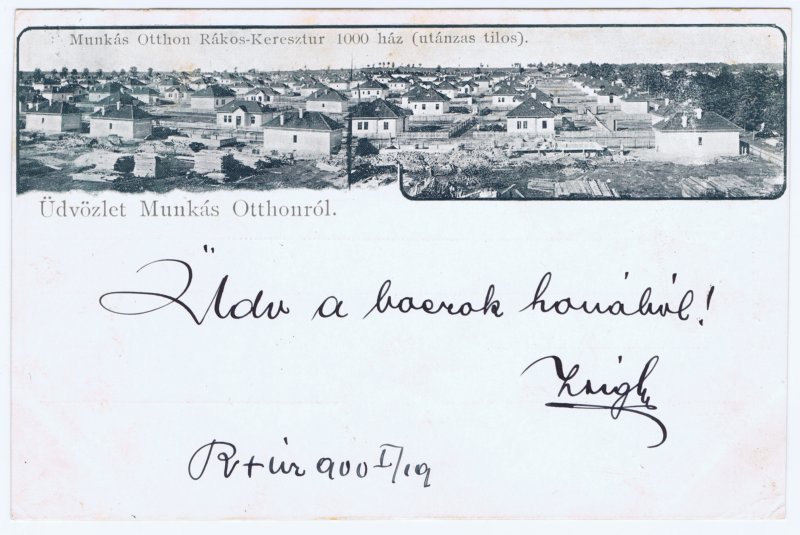 Munkás Otthon Rákos-Keresztur 1000 ház (utánzas tilos).
Üdvözlet Munkás Otthonról.
Üdv a boerok honából!
R+úr 900 I/19